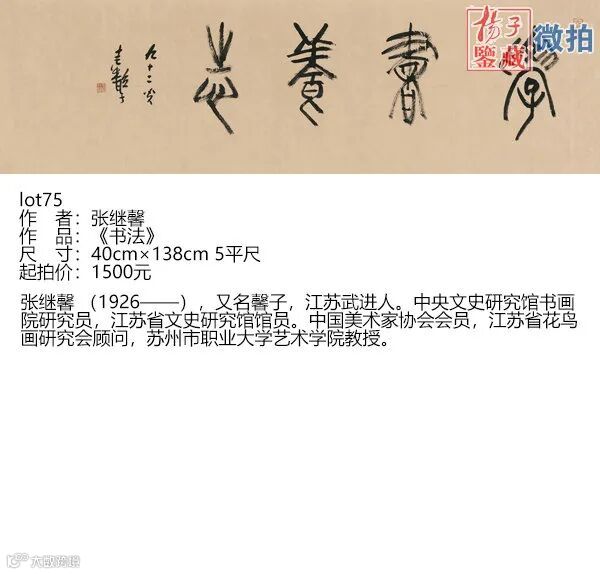 學書養志
九十二
揚子
鑒藏
微拍
lot75
作 者：张继馨
作 品：《书法》
尺 寸：40cm×138cm 5平尺
起拍价：1500元
张继馨 （1926——），又名馨子，江苏武进人。中央文史研究馆书画
院研究员，江苏省文史研究馆馆员。中国美术家协会会员，江苏省花鸟
画研究会顾问，苏州市职业大学艺术学院教授。
大数跨境